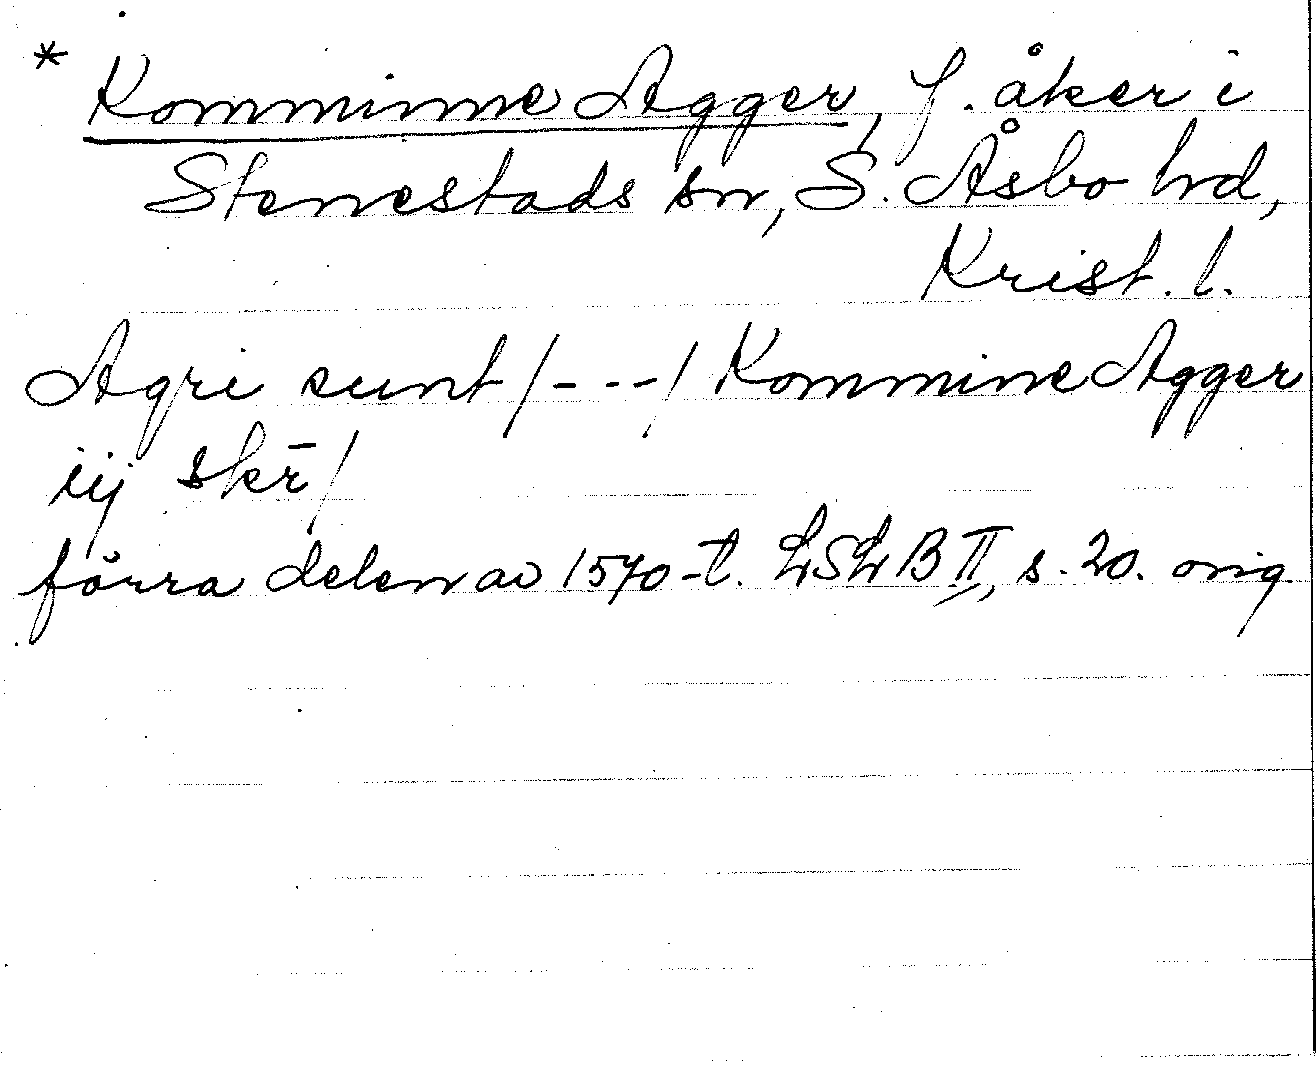 * Komminne Agger, f. åker i
Stenestads sn, S. Åsbo hd,
Krist. l.
Agri sunt /---/ Kommine Agger
iij skr̄ /
förra delen av 1570-t. LSLB II, s. 20. orig